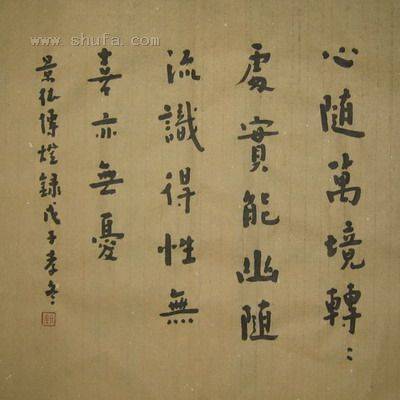 www.shufa.com
心隨萬境轉〻
處實能幽隨
流識得性無
喜亦無憂
景德傳燈錄戊子季冬